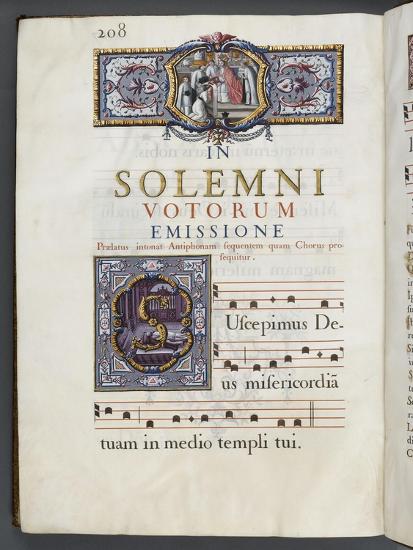 208
IN
SOLEMNI
VOTORUM
EMISSIONE
Prælatus intonat Antiphonam sequentem quam Chorus pro-
sequitur.
SUscepimus De-
us misericordiā
tuam in medio templi tui.